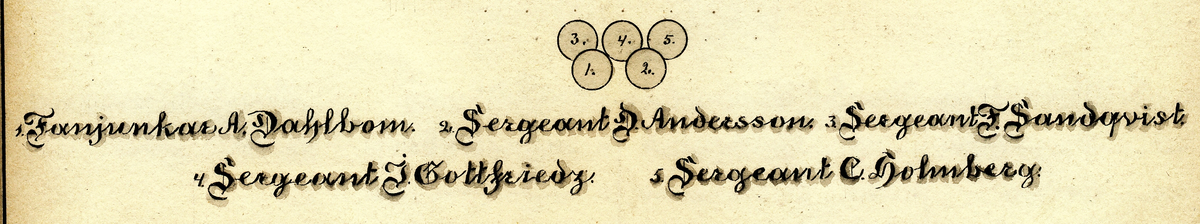 3. 4. 5.
1. 2.
1. Fanjunkar A. Dahlbom. 2. Sergeant D. Andersson. 3 Sergeant F. Sandqvist.
4 Sergeant J. Gottfriedz. 5 Sergeant C. Holmberg.